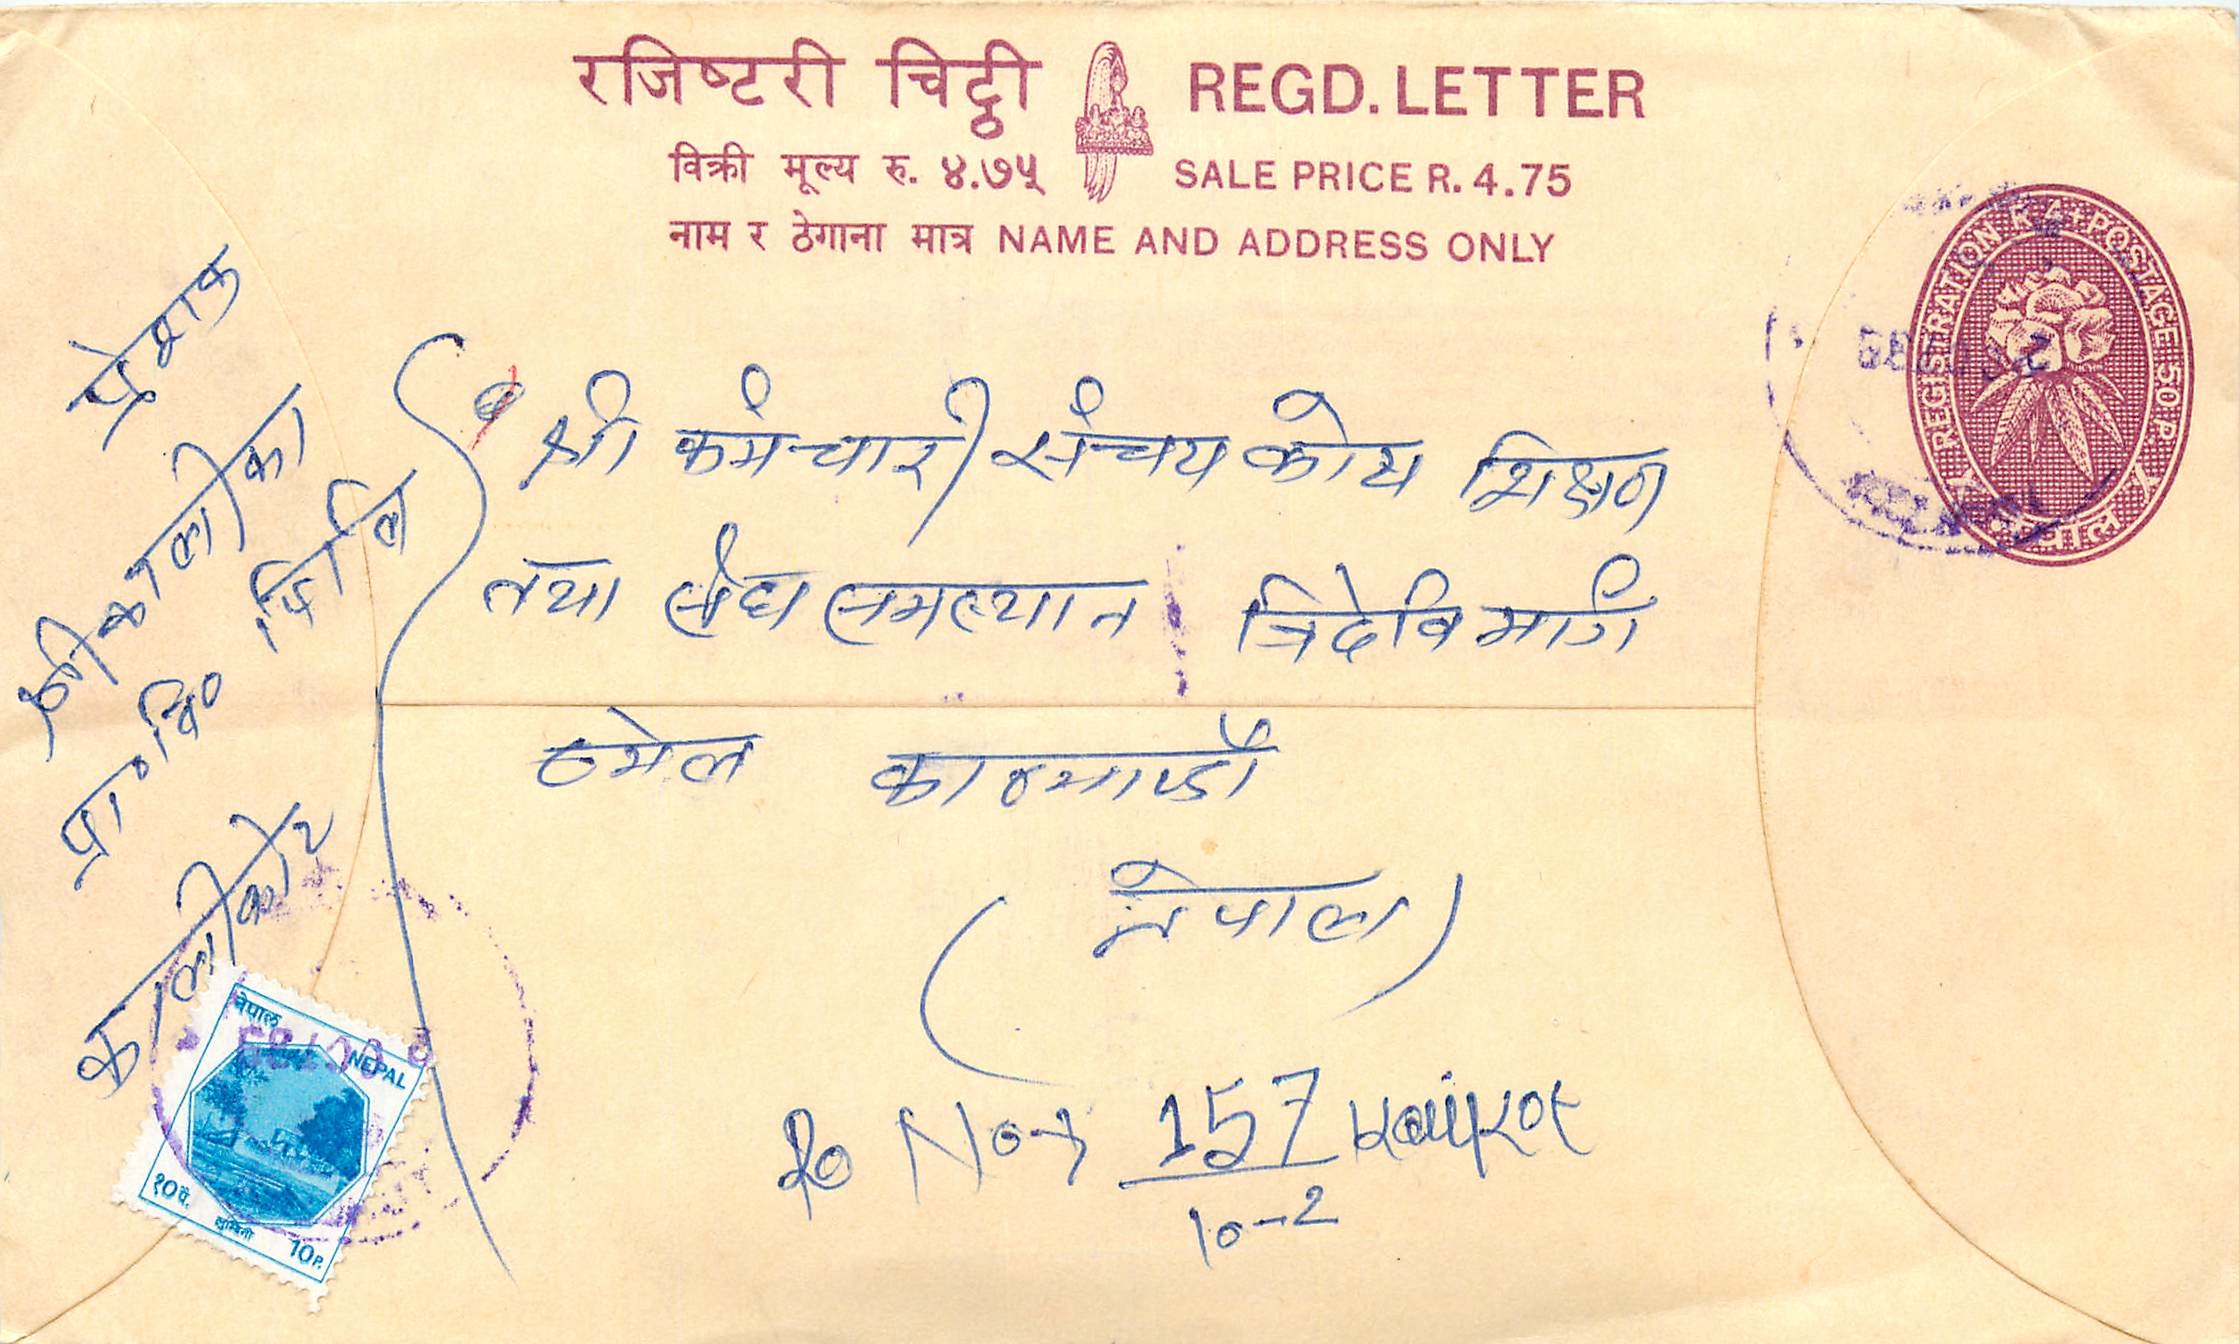 रजिष्टरी चिट्ठी REGD. LETTER
विक्री मूल्य रु. ४.७५ SALE PRICE R. 4.75
नाम र ठेगाना मात्र NAME AND ADDRESS ONLY
REGISTRATION R.4+POSTAGE 50.P.
नेपाल
प्रेषक
श्री कालीका
प्रा०वि०
कालीकोट
श्री कर्मचारी संचय कोष शिक्षण
तथा सेवा समस्थान त्रिदेवि मार्ग
ठमेल काठमाण्डौ
(नेपाल)
R No→ 157
10-2
नेपाल
NEPAL
१०पै.
लुम्बिनी
10P.